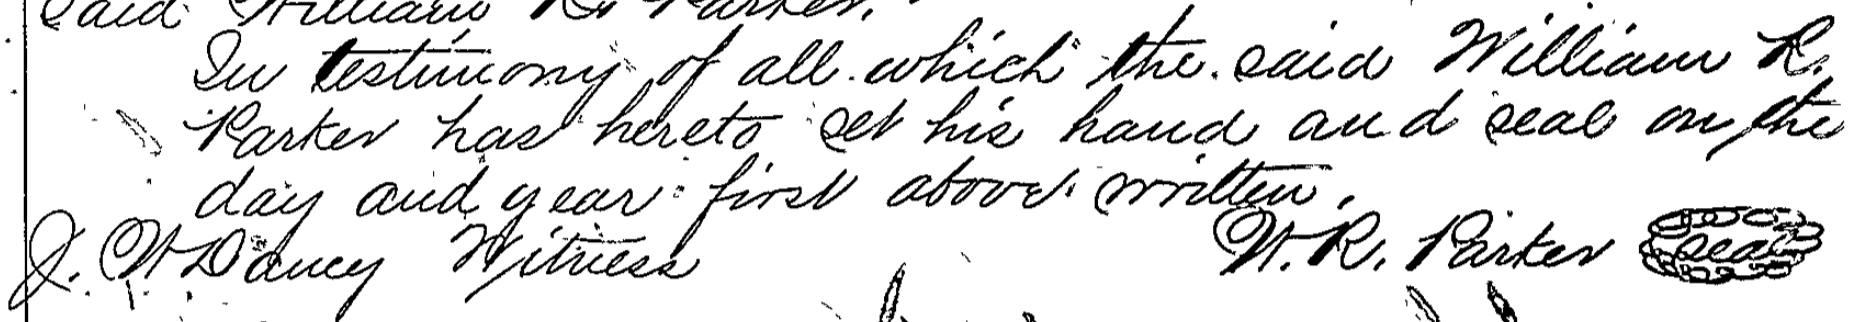 said William R. Parker.
In testimony of all which the said William R.
Parker has hereto set his hand and seal on the
day and year first above written.
J. W. Dancy Witness W. R. Parker seal